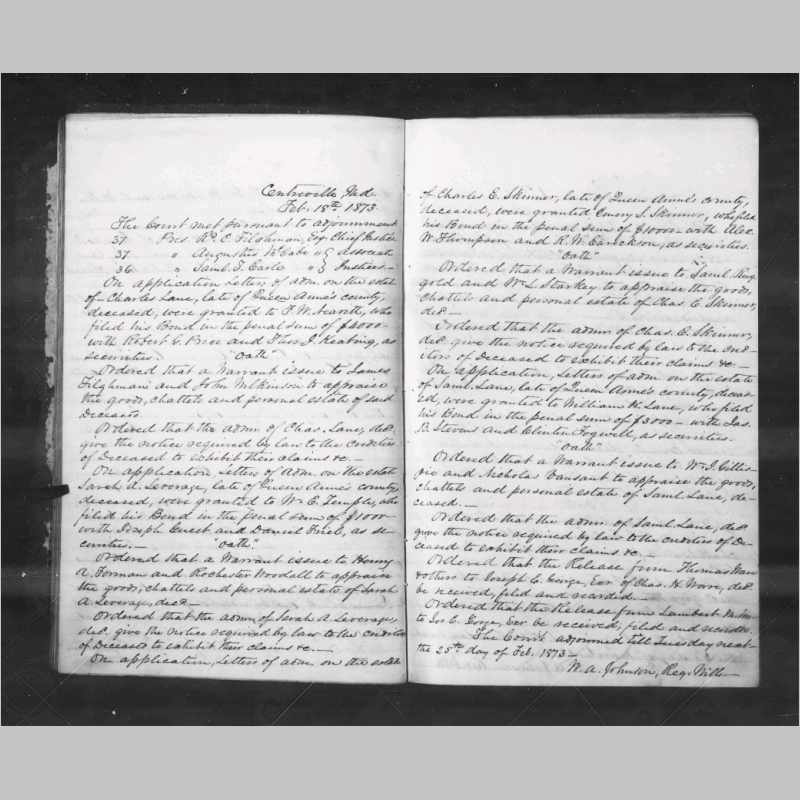 Centreville Md.
Feb. 18th 1873
The Court met pursuant to adjournment
37 Pres R. C. Tilghman, Esq Chief Justice
37 " Augustus McCabe " } Associat
36 " Saml. T. Earle " } Justices —
On application Letters of adm. on the estate
of Charles Lane, late of Queen Anne's county,
deceased, were granted to F. W. who
filed his Bond in the penal sum of $8000 —
with Robert G. Price and Thos J. Keating, as
securities. "Oath"
Ordered that a Warrant issue to James
Tilghman and John Wilkinson to appraise
the goods, chattels and personal estate of said
Deceased
Ordered that the admr. of Chas. Lane, decd.
give the notice required by law to the creditors
of Deceased to exhibit their claims &c —
On application, Letters of adm. on the estate
Sarah A. Leverage, late of Queen Anne's county,
deceased, were granted to Wm. E. Temple, who
filed his Bond in the penal sum of $1000 —
with Joseph Guest and Daniel Friel, as se-
curities. — "Oath"
Ordered that a Warrant issue to Henry
R. Forman and Rochester Woodall to appraise
the goods, chattels and personal estate of Sarah
A. Leverage, decd —
Ordered that the admr. of Sarah A. Leverage,
decd. give the notice required by law to the creditors
of Deceased to exhibit their claims &c. —
On application, Letters of adm. on the estate
of Charles E. Skinner, late of Queen Anne's county,
deceased, were granted Emory S. Skinner, who filed
his Bond in the penal sum of $1000 — with Alex.
W. Thompson and K. W. Carrickson, as securities.
"Oath"
Ordered that a Warrant issue to Saml Ring
gold and Wm L. Starkey to appraise the goods,
chattels and personal estate of Chas. E. Skinner,
decd. —
Ordered that the admr. of Chas. E. Skinner,
decd. give the notice required by law to the cred-
itors of Deceased to exhibit their claims &c —
On application, Letters of adm. on the estate
of Saml. Lane, late of Queen Anne's county, deceas-
ed, were granted to William H. Lane, who filed
his Bond in the penal sum of $3000 — with Jas.
B. Stevens and Clinton Fogwell, as securities.
"Oath"
Ordered that a Warrant issue to Wm. J. Gilles-
pie and Nicholas Vansant to appraise the goods,
chattels and personal estate of Saml Lane, de-
ceased. —
Ordered that the admr. of Saml Lane, decd.
give the notice required by law to the creditors of De-
ceased to exhibit their claims &c. —
Ordered that the Release from Thomas
& others to Joseph C. George, Exr. of Chas. H. decd.
be received, filed and recorded. —
Ordered that the Release from Lambert
to Jos C. George, Exr be received, filed and recorded.
The Court adjourned till Tuesday next
the 25th day of Feb. 1873 —
W. A. Johnson, Reg. Wills —